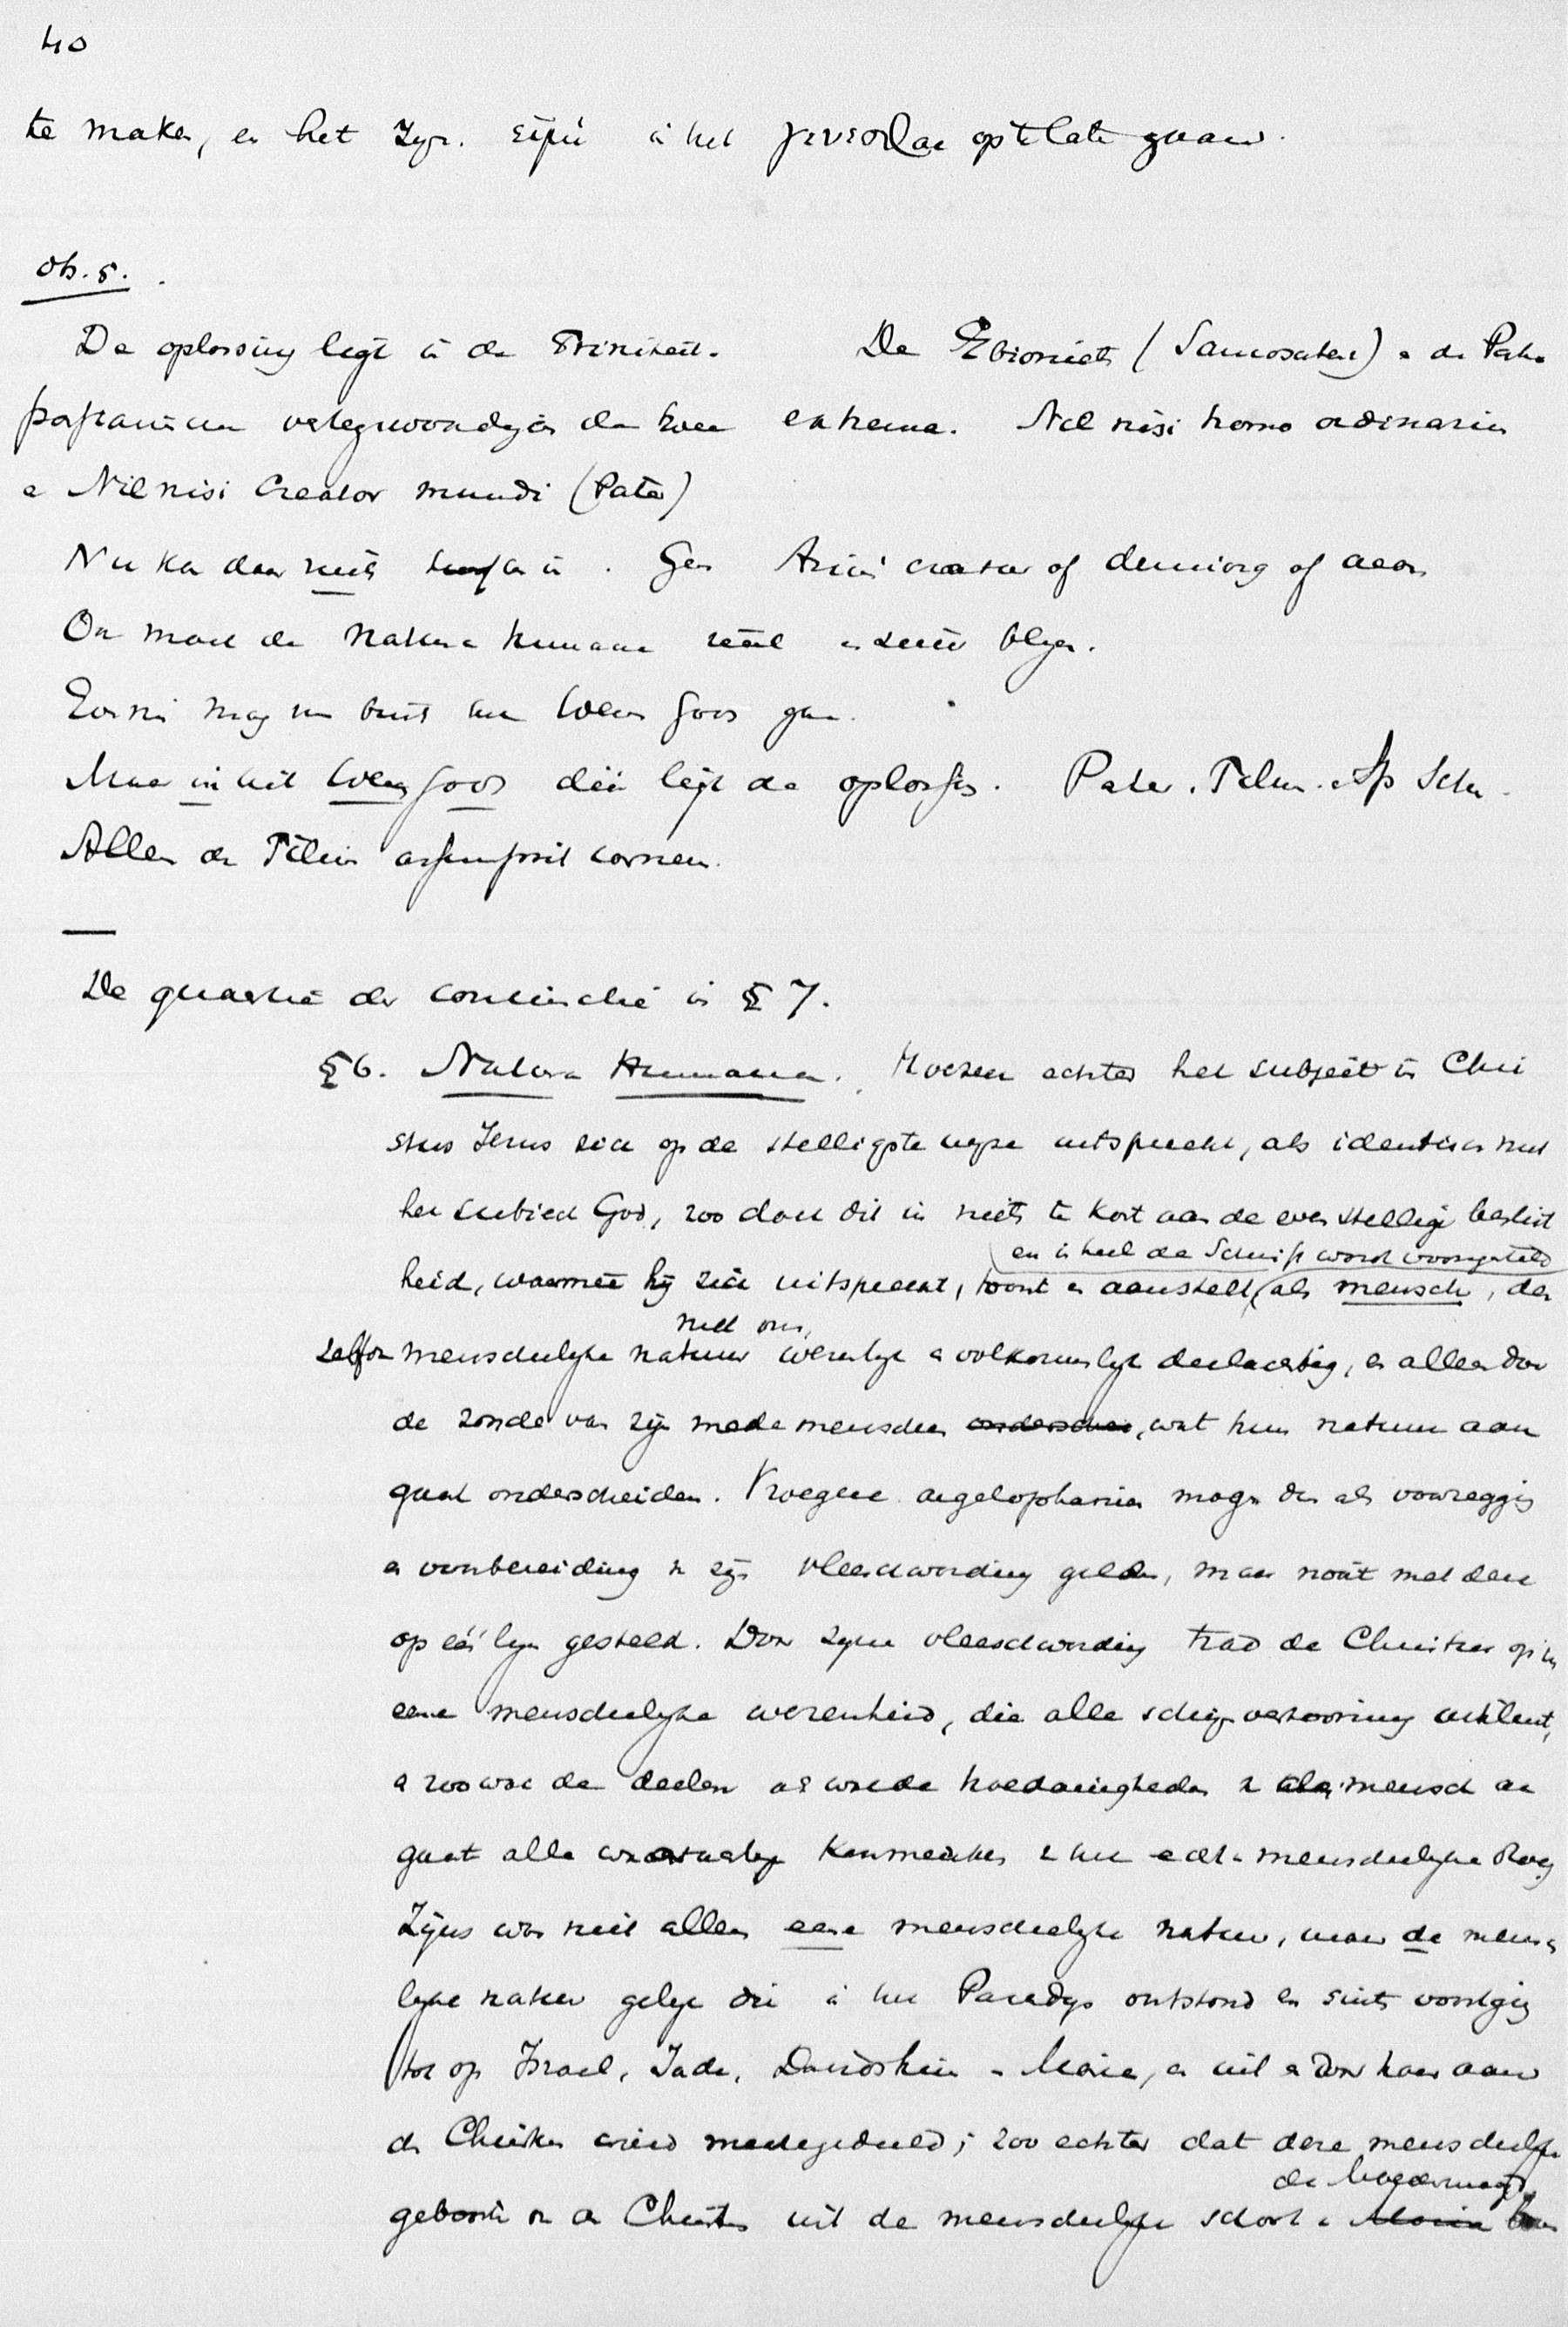 40
te maken, en het Zyn. εἰμί in het γενέσθαι op te laten gaan.
Ob. 5.
De oplossing legt in de Triniteit. De Ebionieten (Samosatener) en de Patri
passianen vertegenwoordigen de twee extrema. Nil nisi homo ordinarius
en Nil nisi Creator mundi (Pater)
Nu kan daar niets tusschen in. Geen creatuur of demiurg of aeon
Ook moet de natura humana reëel en blyven.
En mag men buiten het Wezen Gods gaan.
Maar in het Wezen Gods dáár legt de oplossing. Pater. Filius. Sp Sctus.
Alleen de Filius assumpsit carnem.
De quaestie der conjunctie in § 7.
§ 6. Natura Humana. Hoezeer echter het subject in Chri
stus Jezus zich op de stelligste wyze uitspreekt, als identisch met
het subject God, zoo doet dit in niets te kort aan de even stellige beslist
en in heel de Schrift wordt voorgesteld
heid, waarmeê hij zich uitspreekt, toont en aanstelt, als mensch, der
met ons,
zelfde menschelyke natuur wezenlyk en volkomenlyk deelachtig, en alleen door
de zonde van zijn mede menschen onderscheiden, wat hun natuur aan
gaat onderscheiden. Vroegere angelophanien mogen dan als voorzegging
en voorbereiding van zijn vleeschwording gelden, maar nooit met deze
op één lyn gesteld. Door zyne vleeschwording trad de Christus op in
eene menschelyke wezenheid, die alle schijnvertooning uitsluit,
en zoowel de deelen als wel de hoedanigheden van als mensch aan
gaat alle kenmerken van het echt menschelyke droeg
Zijns was niet alleen eene menschelyke natuur, maar de mensch
lyke natuur gelyk die in het Paradys ontstond en sinds voortging
tot op Israel, Juda, Davidshuis en Maria, en uit en door haar aan
den Christus wierd medegedeeld; zoo echter dat deze menschelyke
de Moedermaagd
geboorte van den Christus uit de menschelyke schoot van Maria